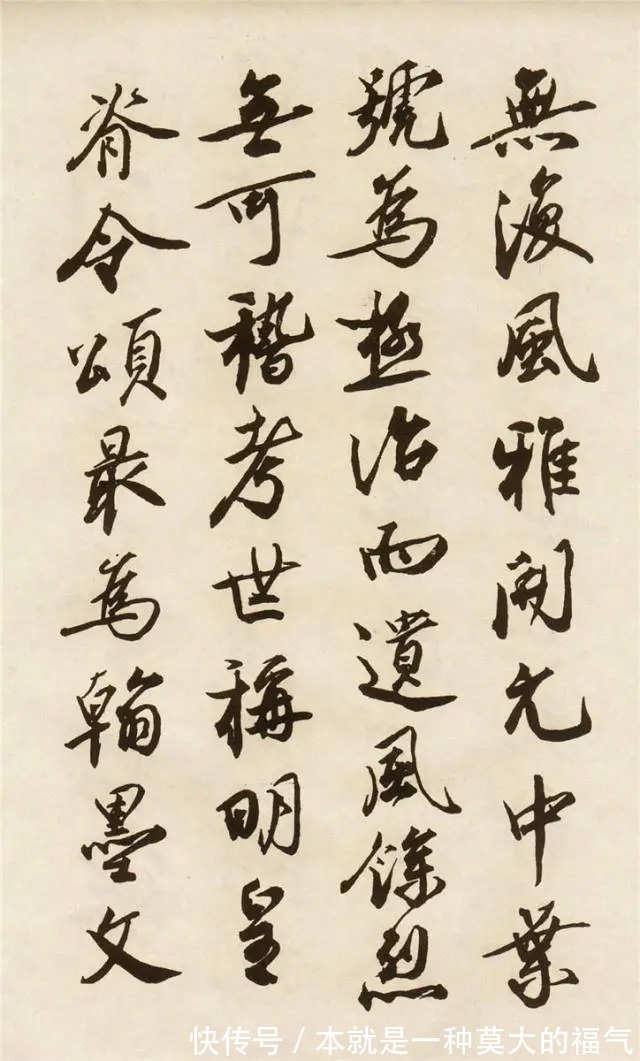 無復風雅開元中葉
號為極治而遺風餘烈
無可稽考世稱明皇
脊令頌最為翰墨文
快传号/本就是一种莫大的福气